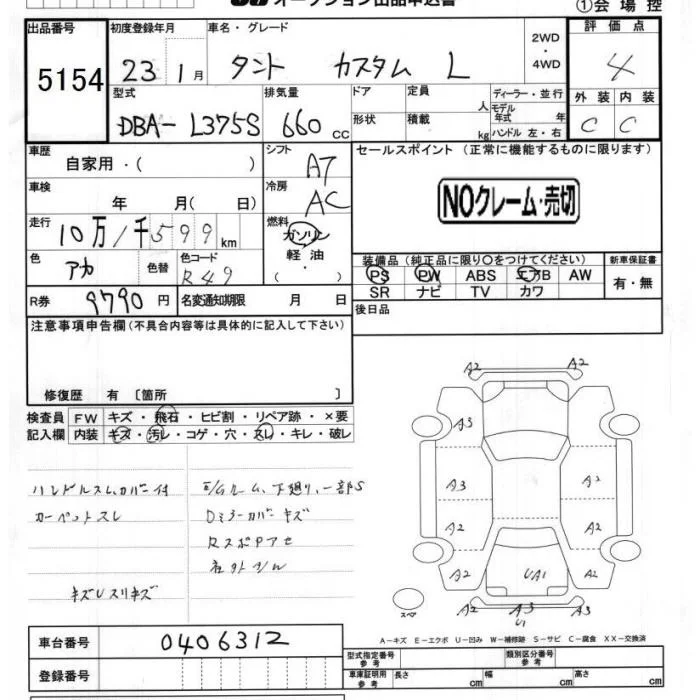 オークション出品申込書
①会場控
出品番号
5154
初度登録年月
23 1月
車名・グレード
タント カスタム L
2WD
・
4WD
評価点
4
外装 内装
C C
型式
DBA-L375S
排気量
660 cc
ドア
形状
定員 人
積載 kg
ディーラー・並行
モデル
年式 年
ハンドル 左・右
車歴
自家用・( )
シフト
AT
セールスポイント (正常に機能するものに限ります)
NOクレーム・売切
車検
年 月( 日)
冷房
AC
走行
10万1千599km
燃料
ガソリン
軽油
・
( )
色
アカ
色替
色コード
R49
装備品(純正品に限り○をつけてください)
PS PW ABS エアB AW
SR ナビ TV カワ
新車保証書
有・無
R券
9790円
名変通知期限 月 日
後日品
注意事項申告欄(不具合内容等は具体的に記入して下さい)
修復歴 有 〔箇所 〕
検査員
記入欄
FW キズ・飛石・ヒビ割・リペア跡・×要
内装 キズ・汚レ・コゲ・穴・スレ・キレ・破レ
ハンドルスレ、カバー付
カーペットスレ
キズUスリキズ
下廻り、一部S
Dミラーカバーキズ
A2 A2
A3
A3 A2
A2 A2
A2 UA1 A2
A2 A3 A2
U1
スペア
A-キズ E-エクボ U-凹み W-補修跡 S-サビ C-腐食 XX-交換済
車台番号
0406312
登録番号
型式指定番号
参考
類別区分番号
参考
車庫証明用
参考
長さ cm 幅 cm 高さ cm